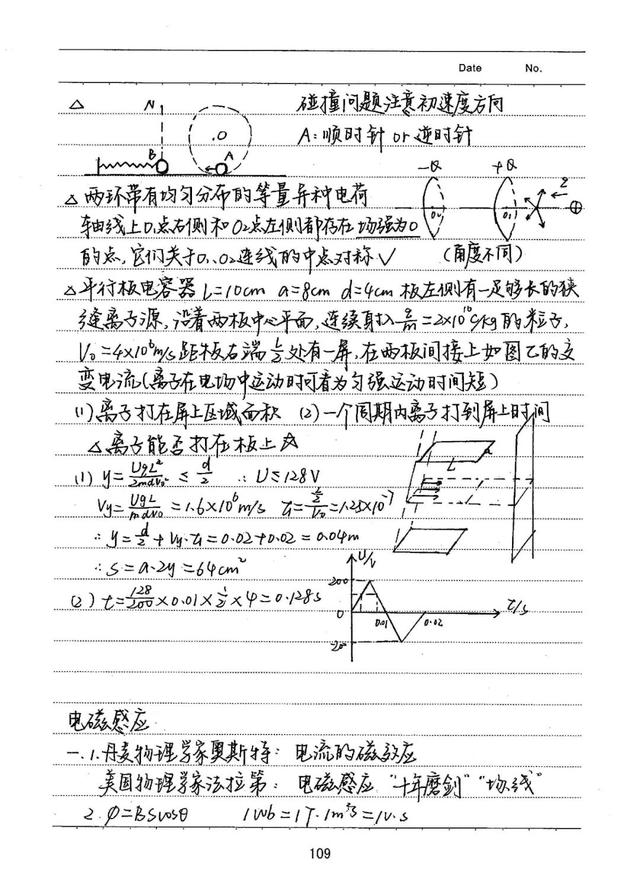 Date No.
△ N 碰撞问题注意初速度方向
.O B A A:顺时针 or 逆时针
-Q +Q
△ 两环带有均匀分布的等量异种电荷 O₂ O₁
轴线上O₁点右侧和O₂点左侧都存在场强为0
的点,它们关于O₁、O₂连线的中点对称√ (角度不同)
△ 平行板电容器 L=10cm a=8cm d=4cm 板左侧有一足够长的狭
缝离子源,沿着两板中心平面,连续射入 q/m=2×10¹⁰C/kg的粒子,
V₀=4×10⁶m/s 距板右端 L/2 处有一屏,在两板间接上如图乙的交
变电流(离子在电场中运动时可看为匀强运动时间短)
(1)离子打在屏上区域面积 (2)一个周期内离子打到屏上时间
△离子能否打在板上☆
(1) y=UqL²/2mdv₀² ≤ d/2 ∴U≤128V L a
Vy=UqL/mdv₀=1.6×10⁶m/s
∴y=d/2+Vy·t₁=0.02+0.02=0.04m
∴S=a·2y=64cm² U/V
(2) t=128/200×0.01×1/2×4=0.128s 200
0 0.01 0.02 t/s
电磁感应
一.1.丹麦物理学家奥斯特:电流的磁效应
美国物理学家法拉第:电磁感应 "十年磨剑" "场线"
2.Φ=BScosθ 1Wb=1T·1m²=1V·s
109